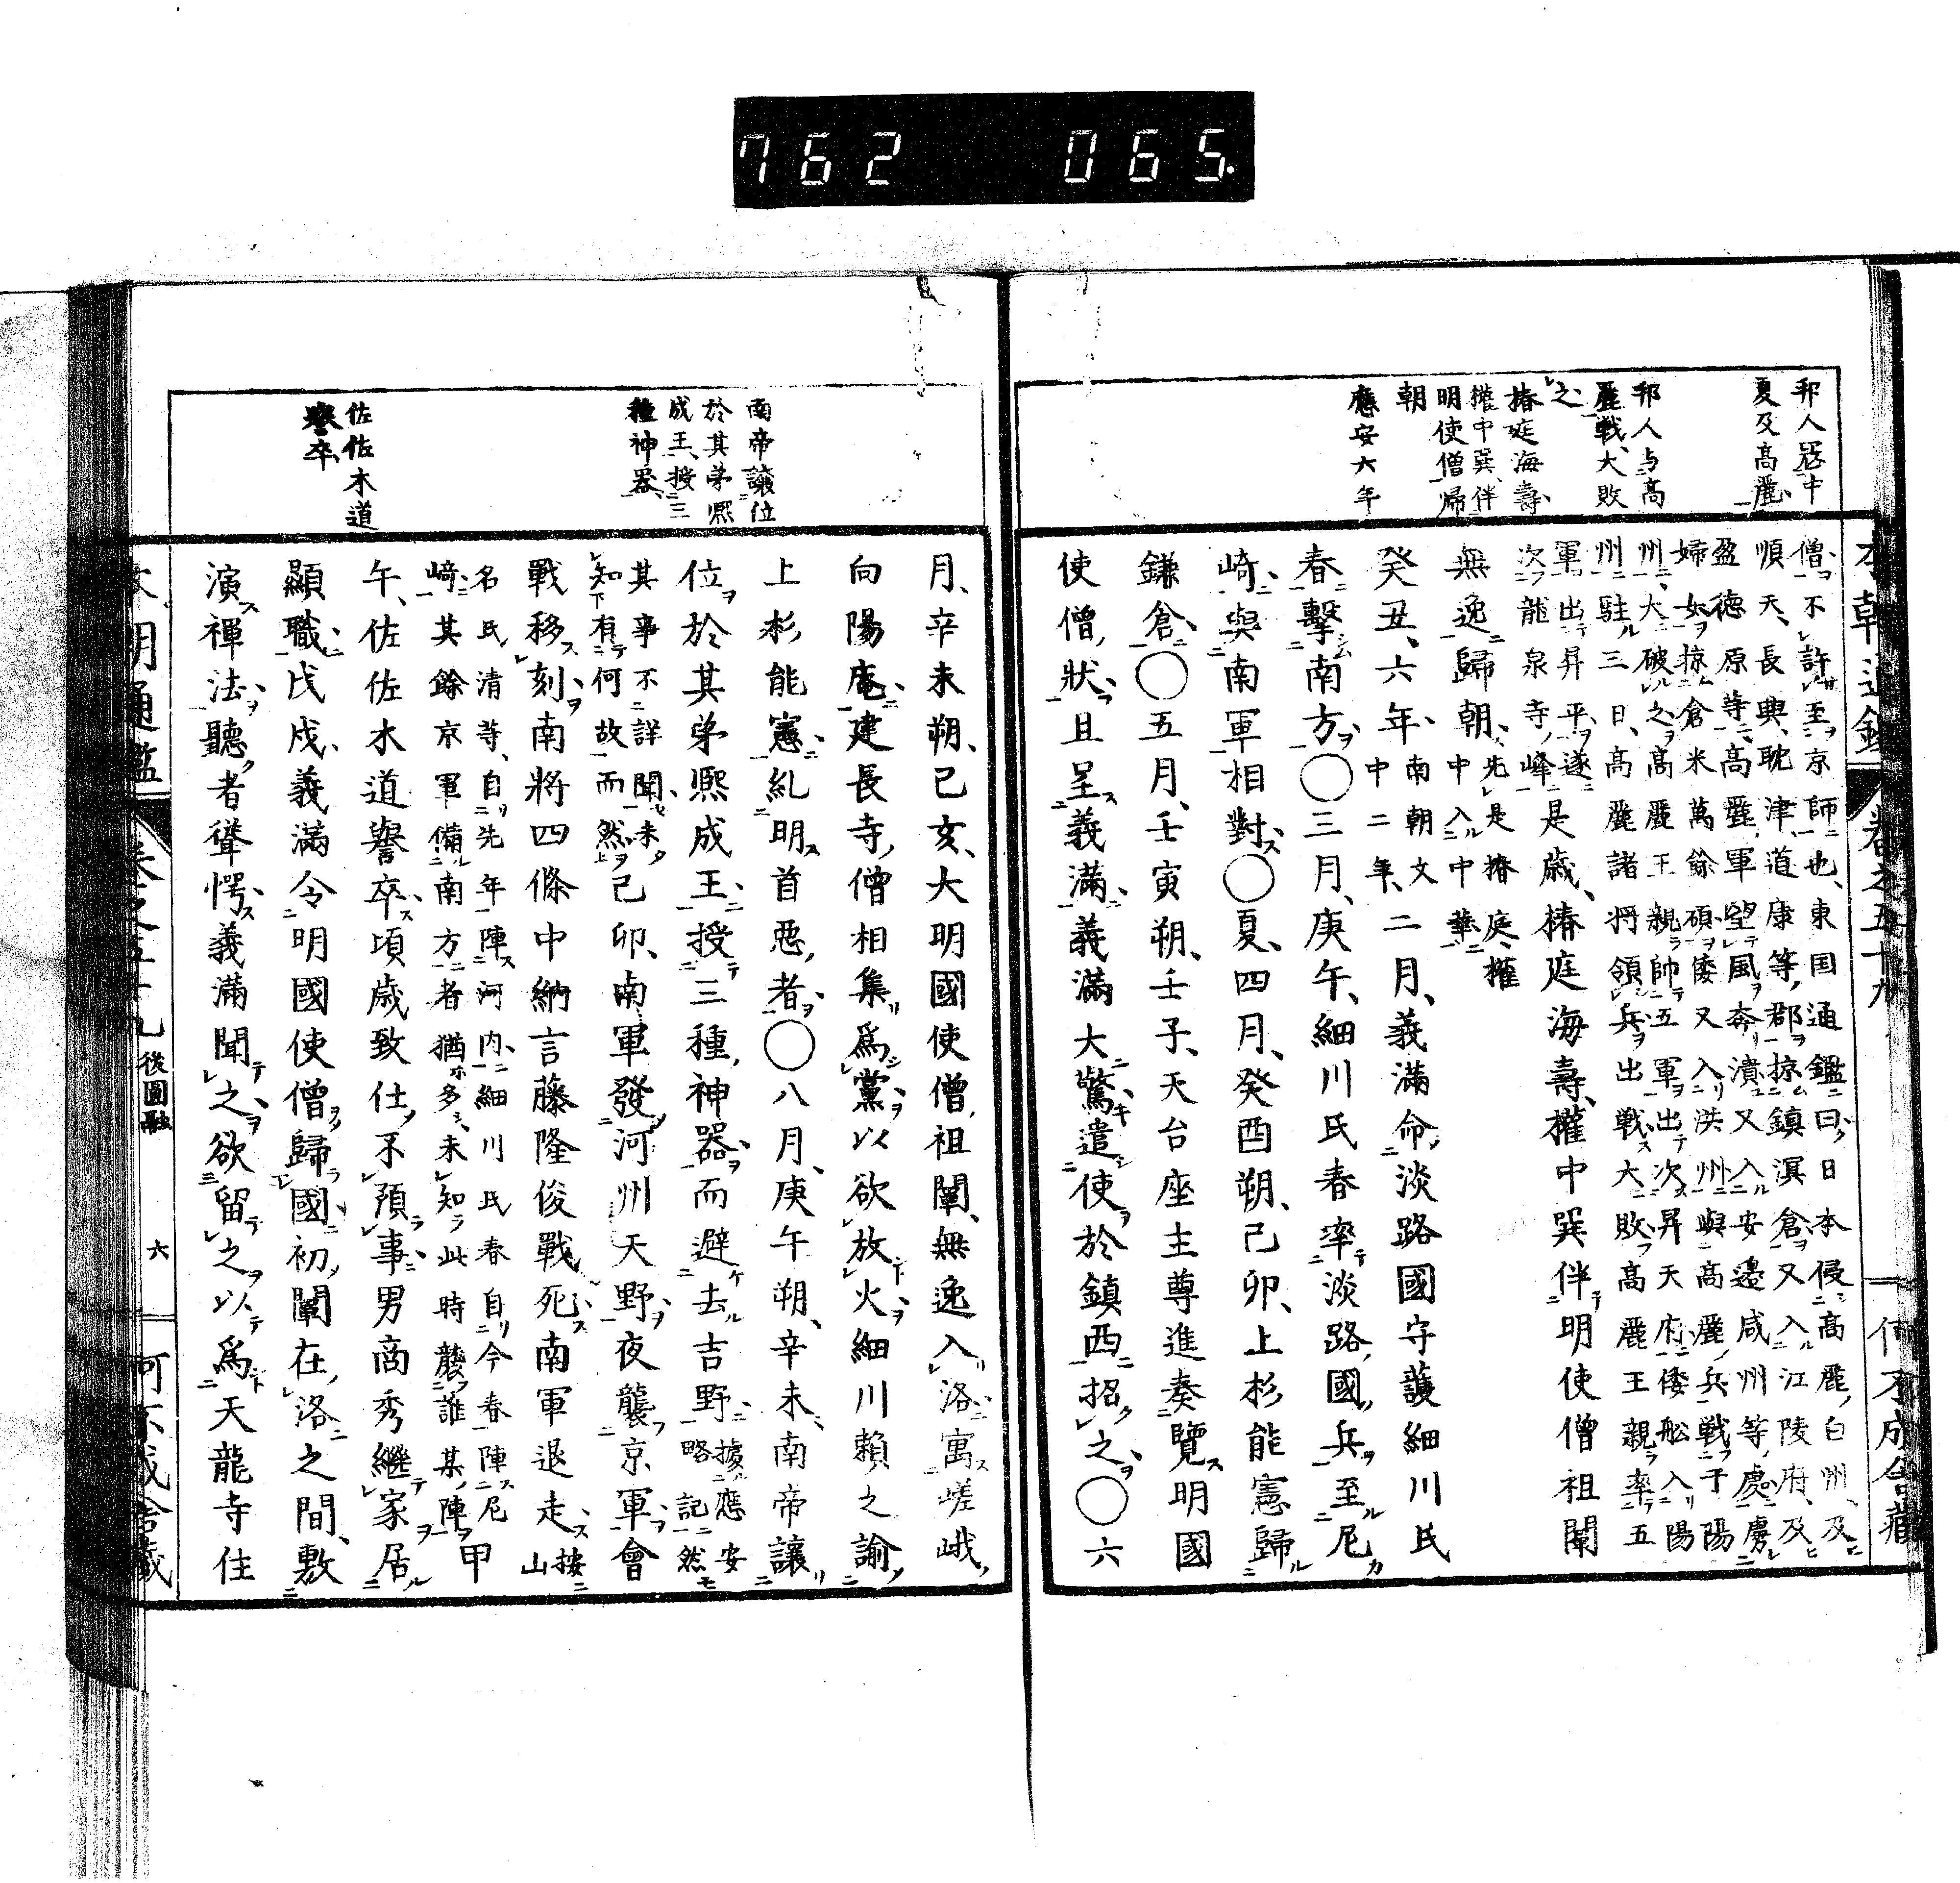 762 065.
邦人寇中
夏及高麗
邦人与高
麗戰大敗
之
椿庭海壽
權中巽伴
明使僧歸
朝
應安六年
本朝通鑑 卷之五十九 何不成舎藏
僧不許至京師也、東国通鑑曰、日本侵高麗、白州、及
順天、長興、耽津、道康等郡、掠鎮溟倉、又入江陵府、及
盈德原等、高麗軍望風奔潰、又入安邊咸州等處、虜
婦女掠倉米萬餘碩、倭又入洪州、與高麗兵戰于陽
州、大破之、高麗王親帥五軍出次昇天府、倭舩入陽
州駐三日、高麗諸将領兵出戰大敗、高麗王親率五
軍出昇平、遂
次龍泉寺峰 是歳、椿庭海壽、權中巽伴明使僧祖闡
無逸歸朝、先是椿庭、權
中入中華
癸丑、六年、南朝文
中二年、 二月、義滿命淡路國守護細川氏
春擊南方〇三月、庚午、細川氏春率淡路國兵至尼
崎與南軍相對〇夏、四月、癸酉朔、己卯、上杉能憲歸
鎌倉〇五月、壬寅朔、壬子、天台座主尊進奏覽明國
使僧狀、且呈義滿、義滿大驚遣使於鎮西招之〇六
月、辛未朔、己亥、大明國使僧祖闡、無逸入洛寓嵯峨
向陽庵、建長寺僧相集爲黨、以欲放火、細川頼之諭
上杉能憲、糺明首惡者〇八月、庚午朔、辛未、南帝讓
位於其弟熈成王、授三種神器、而避去吉野、據應安
略記、然
其事不詳聞、未
知有何故而然 己卯、南軍發河州天野、夜襲京軍、會
戰移刻、南將四條中納言藤隆俊戰死、南軍退走、按
山
名氏清等、自先年陣河内、細川氏春自今春陣尼
崎、其餘京軍備南方者猶多、未知此時襲誰某陣 甲
午、佐佐木道譽卒、頃歳致仕、不預事、男高秀繼家居
顯職、戊戌、義滿令明國使僧歸國、初闡在洛之間、敷
演禪法、聽者聳愕、義滿聞之、欲留之以爲天龍寺住
南帝讓位
於其弟熈
成王授三
種神器
佐佐木道
譽卒
本朝通鑑 卷之五十九 後圓融 六 何不成舎藏